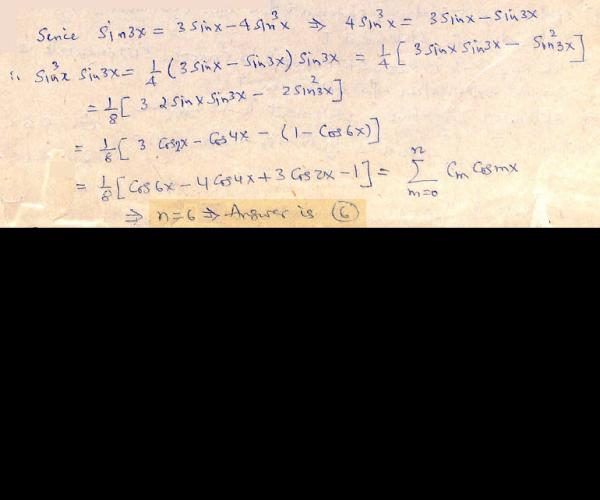 Senice Sin3x = 3 Sinx - 4 Sin³x ⇒ 4 Sin³x = 3 Sinx - Sin3x
∴ Sin³x Sin3x = 1/4 (3 Sinx - Sin3x) Sin3x = 1/4 [3 Sinx Sin3x - Sin²3x]
= 1/8 [3 2 Sinx Sin3x - 2 Sin²3x]
= 1/8 [3 Cos2x - Cos4x - (1 - Cos6x)]
= 1/8 [Cos6x - 4 Cos4x + 3 Cos2x - 1] = ∑_{m=0}^{n} Cm Cosmx
⇒ n=6 ⇒ Answer is ⑥